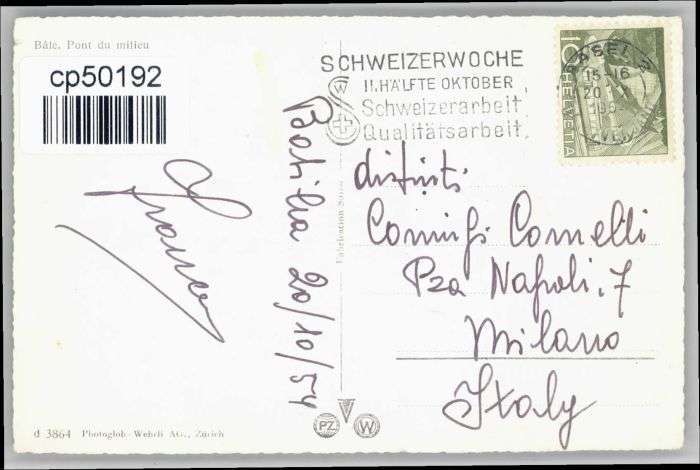 Bâle. Pont du milieu
cp50192
SCHWEIZERWOCHE
II. HÄLFTE OKTOBER
Schweizerarbeit
Qualitätsarbeit
W
10 HELVETIA
BASEL 2
15-16
20.
distinti
Coniugi Comelli
Pza Napoli, 7
Milano
Italy
20/10/54
Franco
d 3864 Photoglob-Wehrli AG., Zürich
PZ W